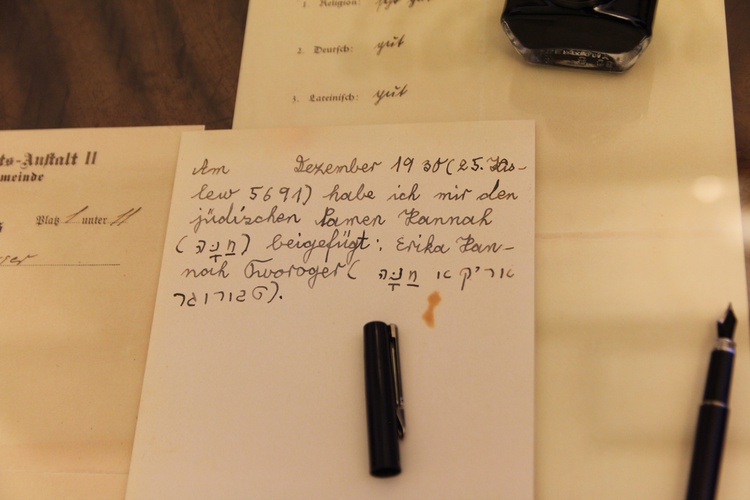 1. Religion: sehr gut
2. Deutsch: gut
3. Lateinisch: gut
ts-Anstalt II
meinde
Platz 1 unter 11
Am Dezember 1930 (25. Kis-
lew 5691) habe ich mir den
jüdischen Namen Hannah
(חַנָּה) beigefügt: Erika Han-
nah Tworoger (אוריקא חַנָּה
טבורוגר).